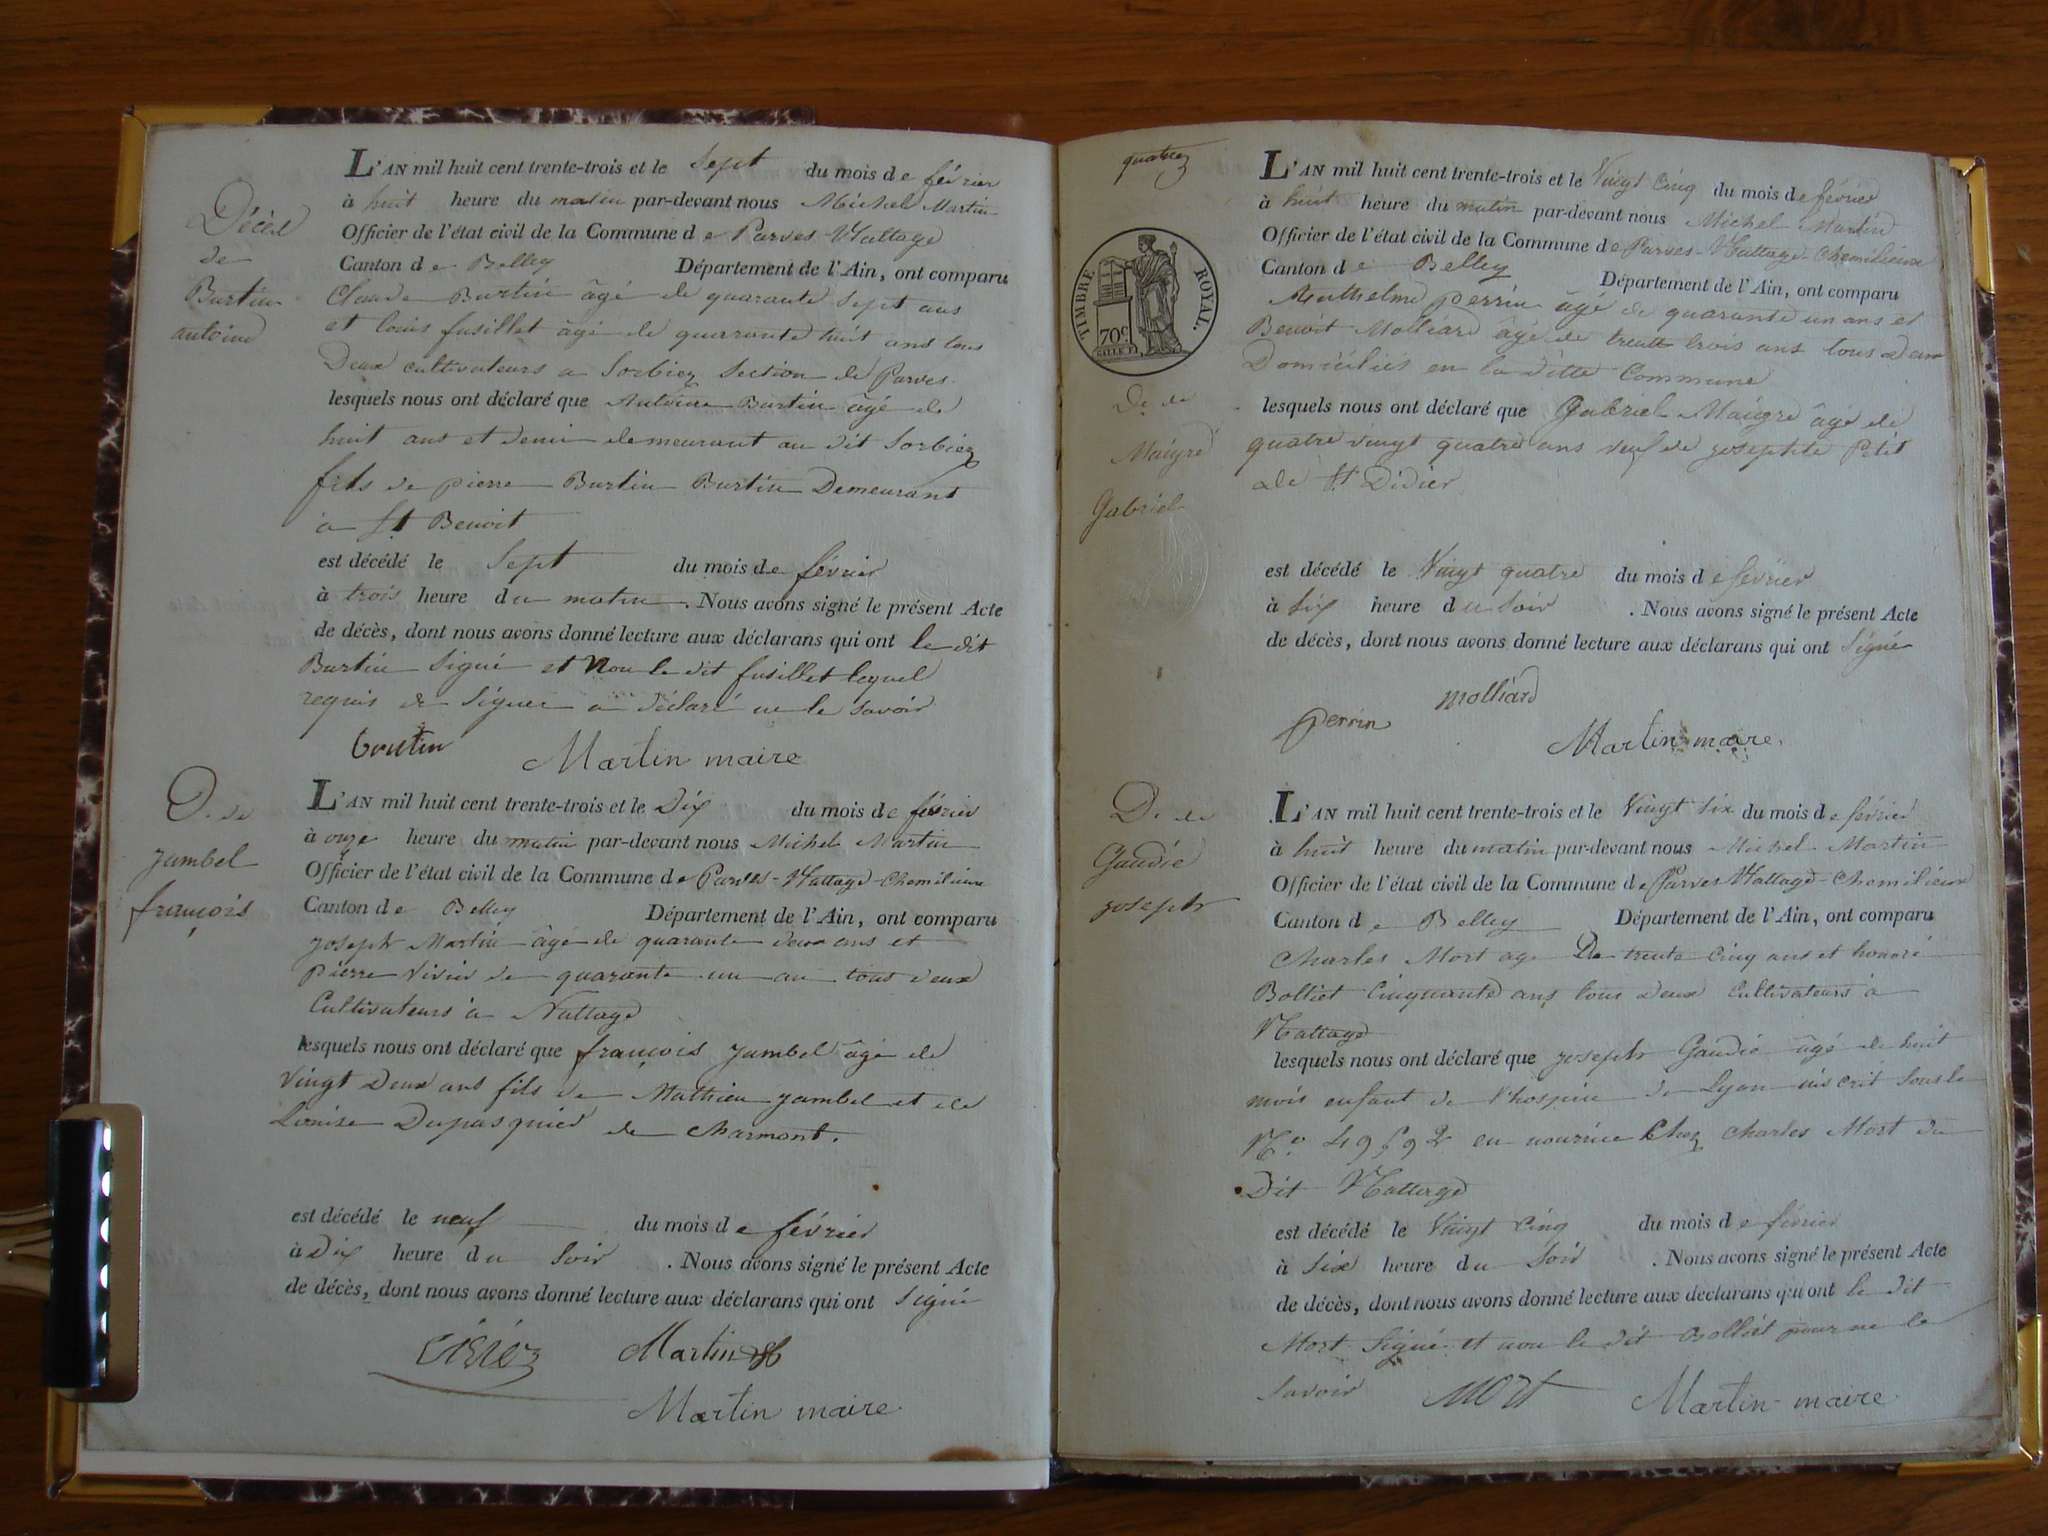 Décès
de
Burtin
antoine
L'AN mil huit cent trente-trois et le sept du mois de février
à huit heure du matin par-devant nous Michel Martin
Officier de l'état civil de la Commune de Parves-Nattage
Canton de Belley Département de l'Ain, ont comparu
Claude Burtin âgé de quarante sept ans
et louis fusillet âgé de quarante huit ans tous
Deux cultivateurs a Sorbiez Section de Parves
lesquels nous ont déclaré que Antoine Burtin âgé de
huit ans et demi demeurant au dit Sorbiez
fils de pierre Burtin Burtin Demeurant
a St Benoit
est décédé le Sept du mois de février
à trois heure du matin . Nous avons signé le présent Acte
de décès, dont nous avons donné lecture aux déclarans qui ont le dit
Burtin Signé et Non le dit fusillet lequel
requis de Signer a déclaré ne le savoir
Martin maire
D. de
jambel
françois
L'AN mil huit cent trente-trois et le Dix du mois de février
à onze heure du matin par-devant nous Michel Martin
Officier de l'état civil de la Commune de Parves-Nattage-Chemilieux
Canton de Belley Département de l'Ain, ont comparu
joseph Martin âgé de quarante deux ans et
pierre Vivier de quarante un an tous deux
Cultivateurs a Nattage
lesquels nous ont déclaré que françois jambel âgé de
Vingt Deux ans fils de Mathieu jambel et de
Louise Dupasquier de Charmont.
est décédé le neuf du mois de février
à Dix heure du Soir . Nous avons signé le présent Acte
de décès, dont nous avons donné lecture aux déclarans qui ont Signé
Martin
Martin maire
quatre
TIMBRE ROYAL.
70c
D. de
Maigre
Gabriel
L'AN mil huit cent trente-trois et le Vingt Cinq du mois de février
à huit heure du matin par-devant nous Michel Martin
Officier de l'état civil de la Commune de Parves-Nattage-Chemilieux
Canton de Belley Département de l'Ain, ont comparu
Anthelme perrin âgé de quarante un ans et
Benoit Molliard âgé de trente trois ans tous Deux
Domiciliés en la ditte Commune
lesquels nous ont déclaré que Gabriel Maigre âgé de
quatre vingt quatre ans veuf de josephte Petit
de St Didier
est décédé le Vingt quatre du mois de février
à Six heure du Soir . Nous avons signé le présent Acte
de décès, dont nous avons donné lecture aux déclarans qui ont Signé
molliard
perrin
Martin maire.
D. de
Gaudie
joseph
L'AN mil huit cent trente-trois et le Vingt Six du mois de février
à huit heure du matin par-devant nous Michel Martin
Officier de l'état civil de la Commune de Parves Nattage-Chemilieux
Canton de Belley Département de l'Ain, ont comparu
Charles Mort age De trente Cinq ans et honoré
Bolliet Cinquante ans tous Deux Cultivateurs a
Nattage
lesquels nous ont déclaré que joseph Gaudie âgé de huit
mois enfant de l'hospice de Lyon inscrit sous le
No. en nourrice Chez Charles Mort du
Dit Nattage
est décédé le Vingt Cinq du mois de février
à Six heure du Soir . Nous avons signé le présent Acte
de décès, dont nous avons donné lecture aux déclarans qui ont le dit
Mort Signé et non le dit Bolliet pour ne le
Savoir
Mort Martin maire